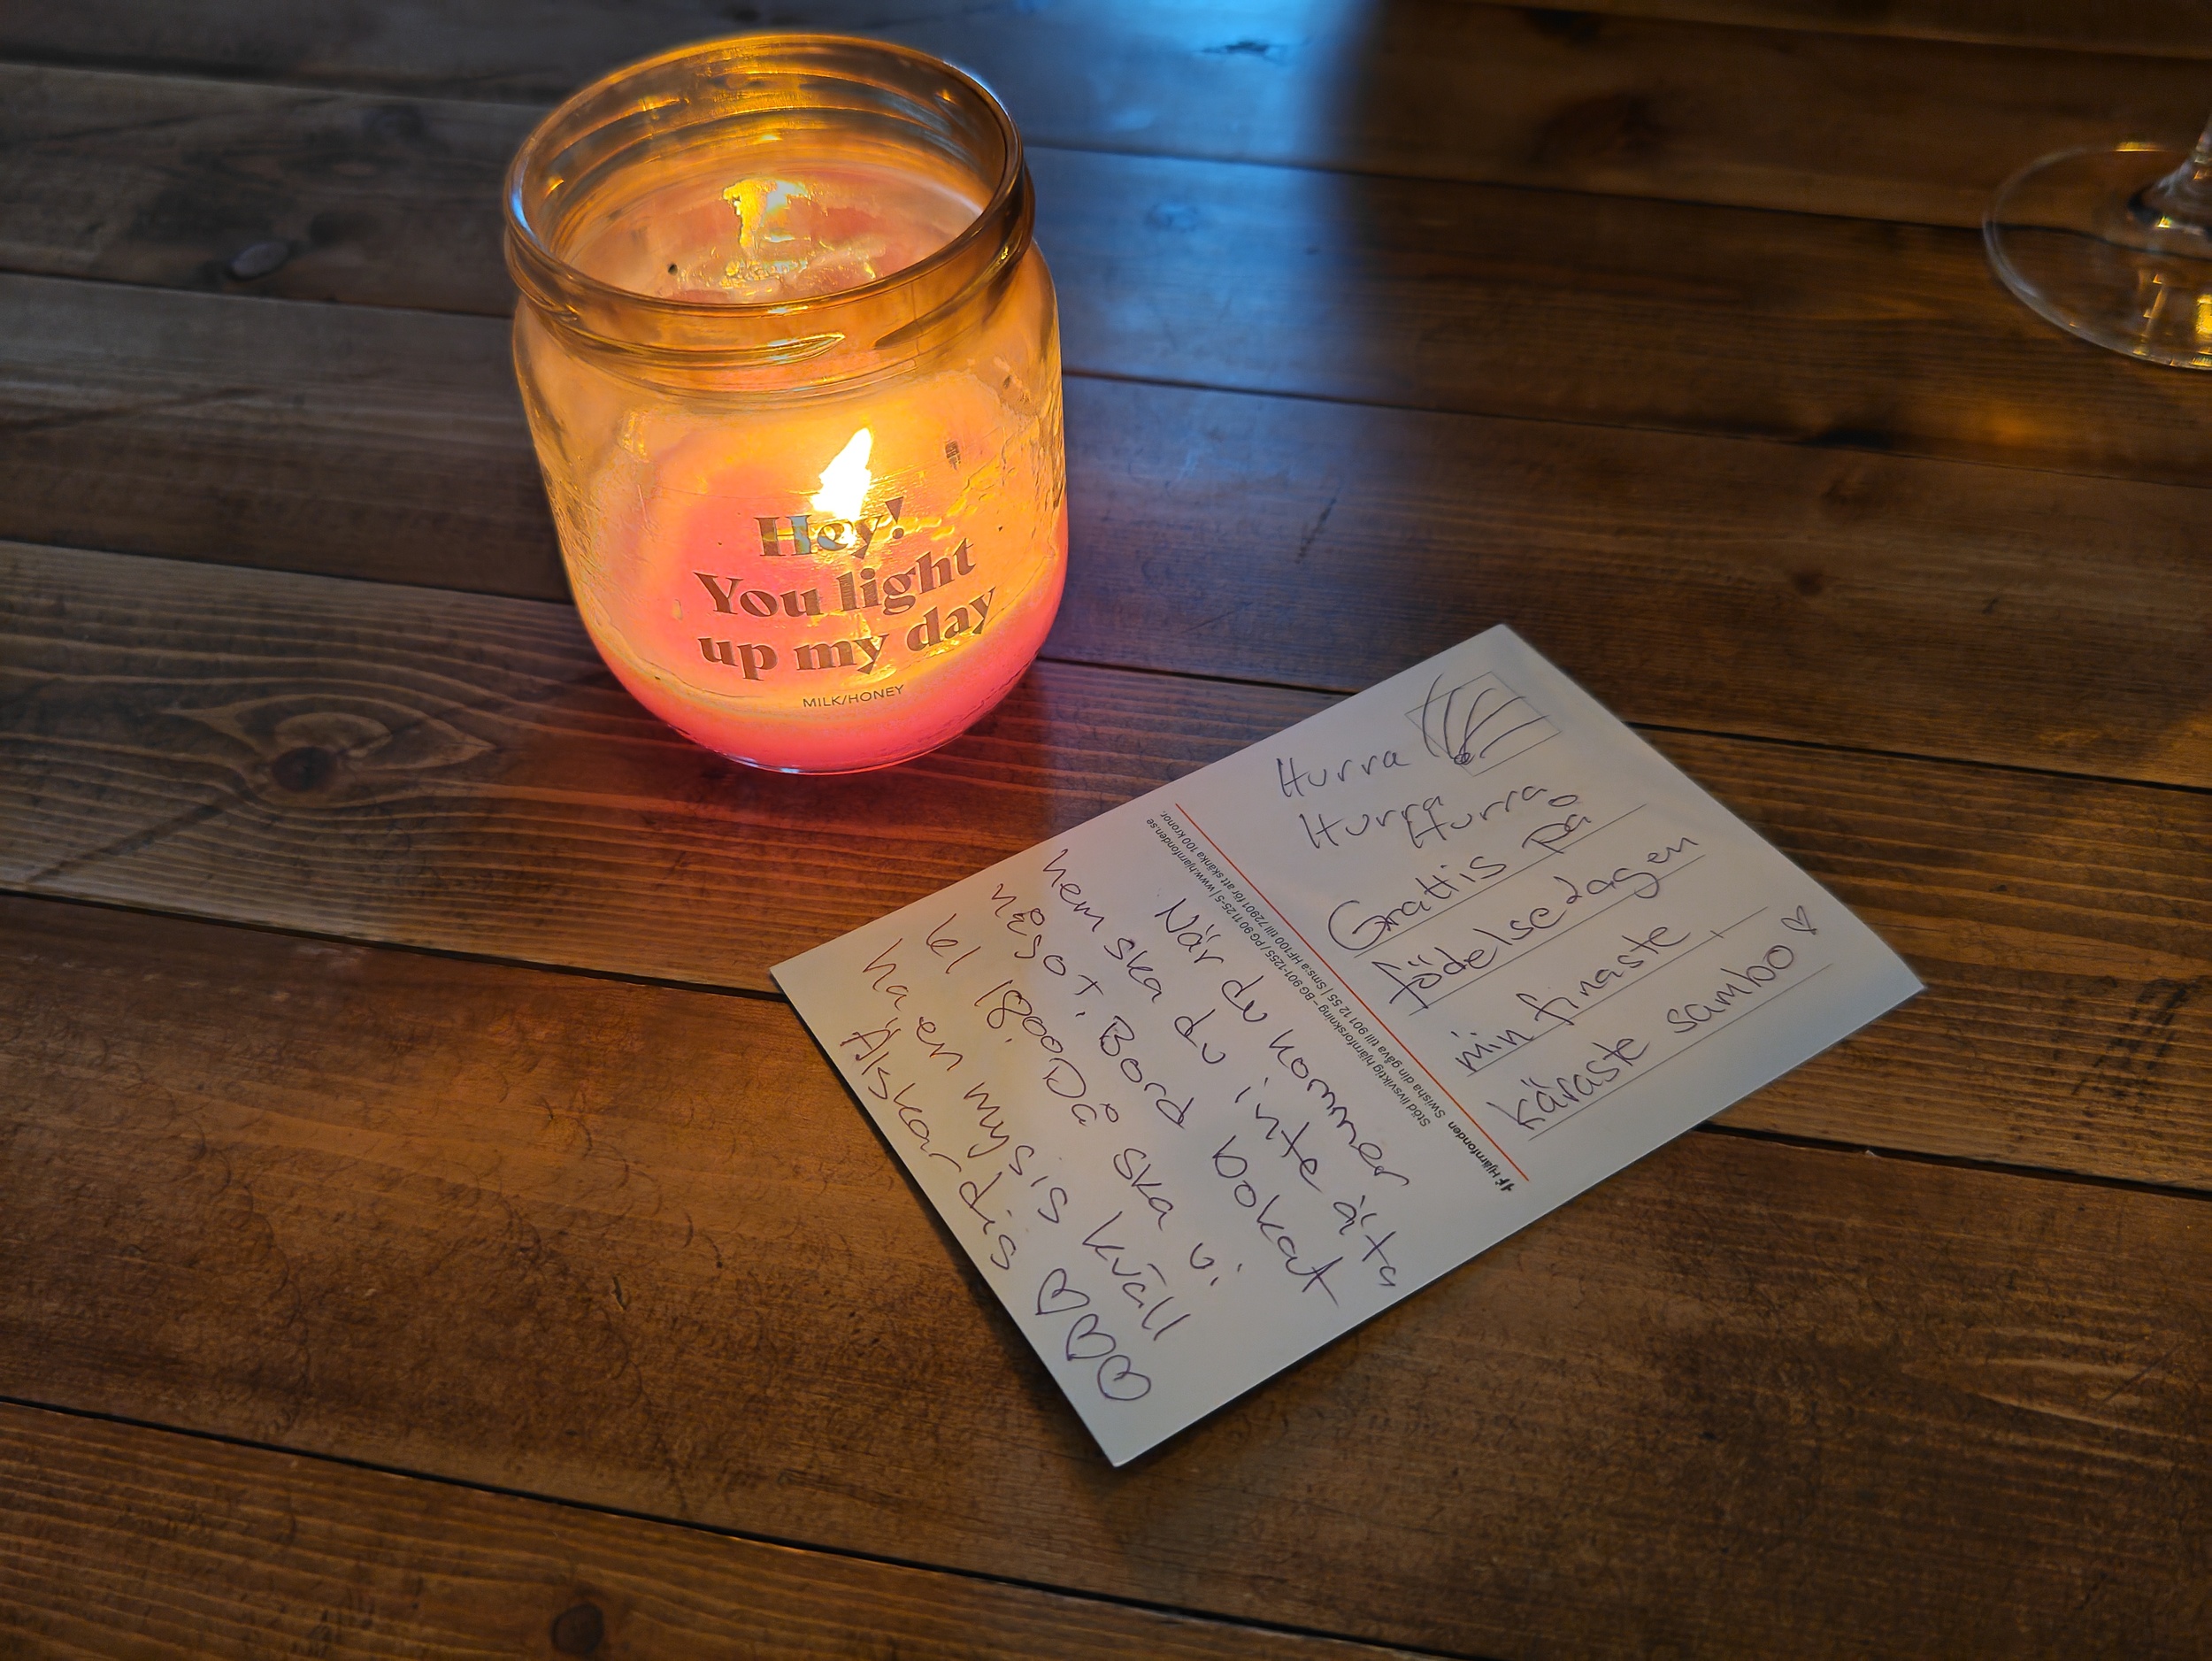 Hey!
You light
up my day
MILK/HONEY
När du kommer
hem ska du inte äta
något. Bord bokat
kl 18.00. Då ska vi
ha en mysis kväll
Älskar dig
Hjärnfonden
Stöd livsviktig hjärnforskning – BG 901-1255 / PG 90 11 25-5 | www.hjarnfonden.se
Swisha din gåva till 901 12 55 | Sms:a HF100 till 72901 för att skänka 100 kronor.
Hurra
Hurra
Hurra
Grattis på
födelsedagen
min finaste
käraste sambo